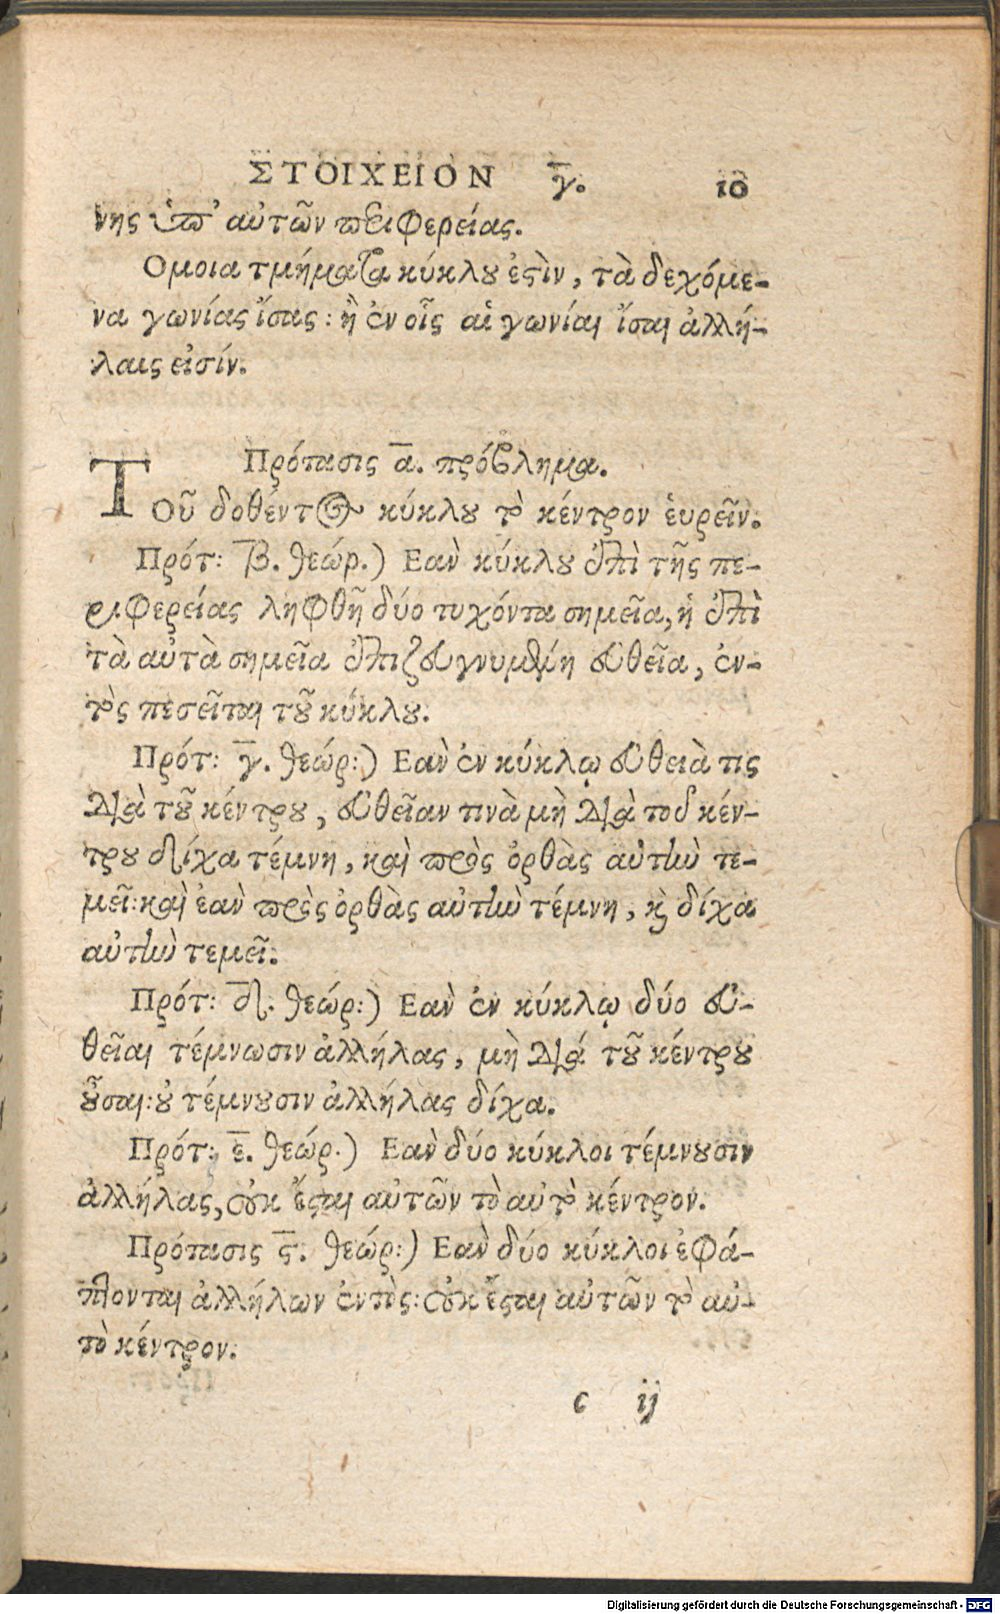 ΣΤΟΙΧΕΙΟΝ γ̅. 10
νης ὑπ' αὐτῶν περιφερείας.
Ομοια τμήματα κύκλου ἐστὶν, τὰ δεχόμε-
να γωνίας ἴσας: ἢ ἐν οἷς αἱ γωνίαι ἴσαι ἀλλή-
λαις εἰσίν.
Πρότασις α̅. πρόβλημα.
ΤΟῦ δοθέντος κύκλου τὸ κέντρον ἑυρεῖν.
Πρότ: β̅. θεώρ.) Εαν̀ κύκλου ἐπὶ τῆς πε-
ριφερείας ληφθῇ δύο τυχόντα σημεῖα, ἡ ἐπὶ
τὰ αὐτὰ σημεῖα ἐπιζευγνυμένη εὐθεῖα, ἐν-
τὸς πεσεῖται τοῦ κύκλου.
Πρότ: γ̅. θεώρ:) Εαν̀ ἐν κύκλῳ εὐθειὰ τις
διὰ τοῦ κέντρου, εὐθεῖαν τινὰ μὴ διὰ τοῦ κέν-
τρου δίχα τέμνη, καὶ πρὸς ὀρθὰς αὐτὴν τε-
μεῖ: καὶ ἐὰν πρὸς ὀρθὰς αὐτὴν τέμνη, καὶ δίχα
αὐτὴν τεμεῖ.
Πρότ: δ̅. θεώρ:) Εαν̀ ἐν κύκλῳ δύο εὐ-
θεῖαι τέμνωσιν ἀλλήλας, μὴ διά τοῦ κέντρου
οὖσαι: οὐ τέμνουσιν ἀλλήλας δίχα.
Πρότ: ε̅. θεώρ.) Εαν̀ δύο κύκλοι τέμνουσιν
ἀλλήλας, οὐκ ἔσται αὐτῶν τὸ αὐτὸ κέντρον.
Πρότασις ϛ̅. θεώρ:) Εαν̀ δύο κύκλοι ἐφά-
πτονται ἀλλήλων ἐντὸς: οὐκ ἔσται αὐτῶν τὸ αὐ-
τὸ κέντρον.
c ij
Digitalisierung gefördert durch die Deutsche Forschungsgemeinschaft - DFG